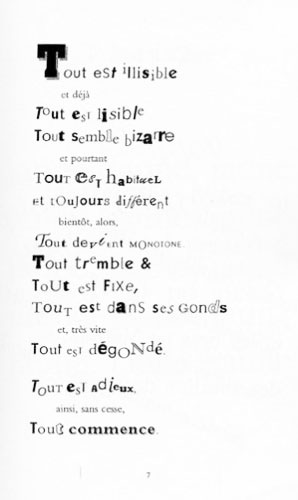 Tout est illisible
et déjà
Tout est lisible
Tout semble bizarre
et pourtant
Tout est habituel
et toujours différent
bientôt, alors,
Tout devient MONOTONE.
Tout tremble &
Tout est Fixe,
Tout est dans ses Gonds
et, très vite
Tout est dégondé.
Tout est Adieux,
ainsi, sans cesse,
Tout commence.
7